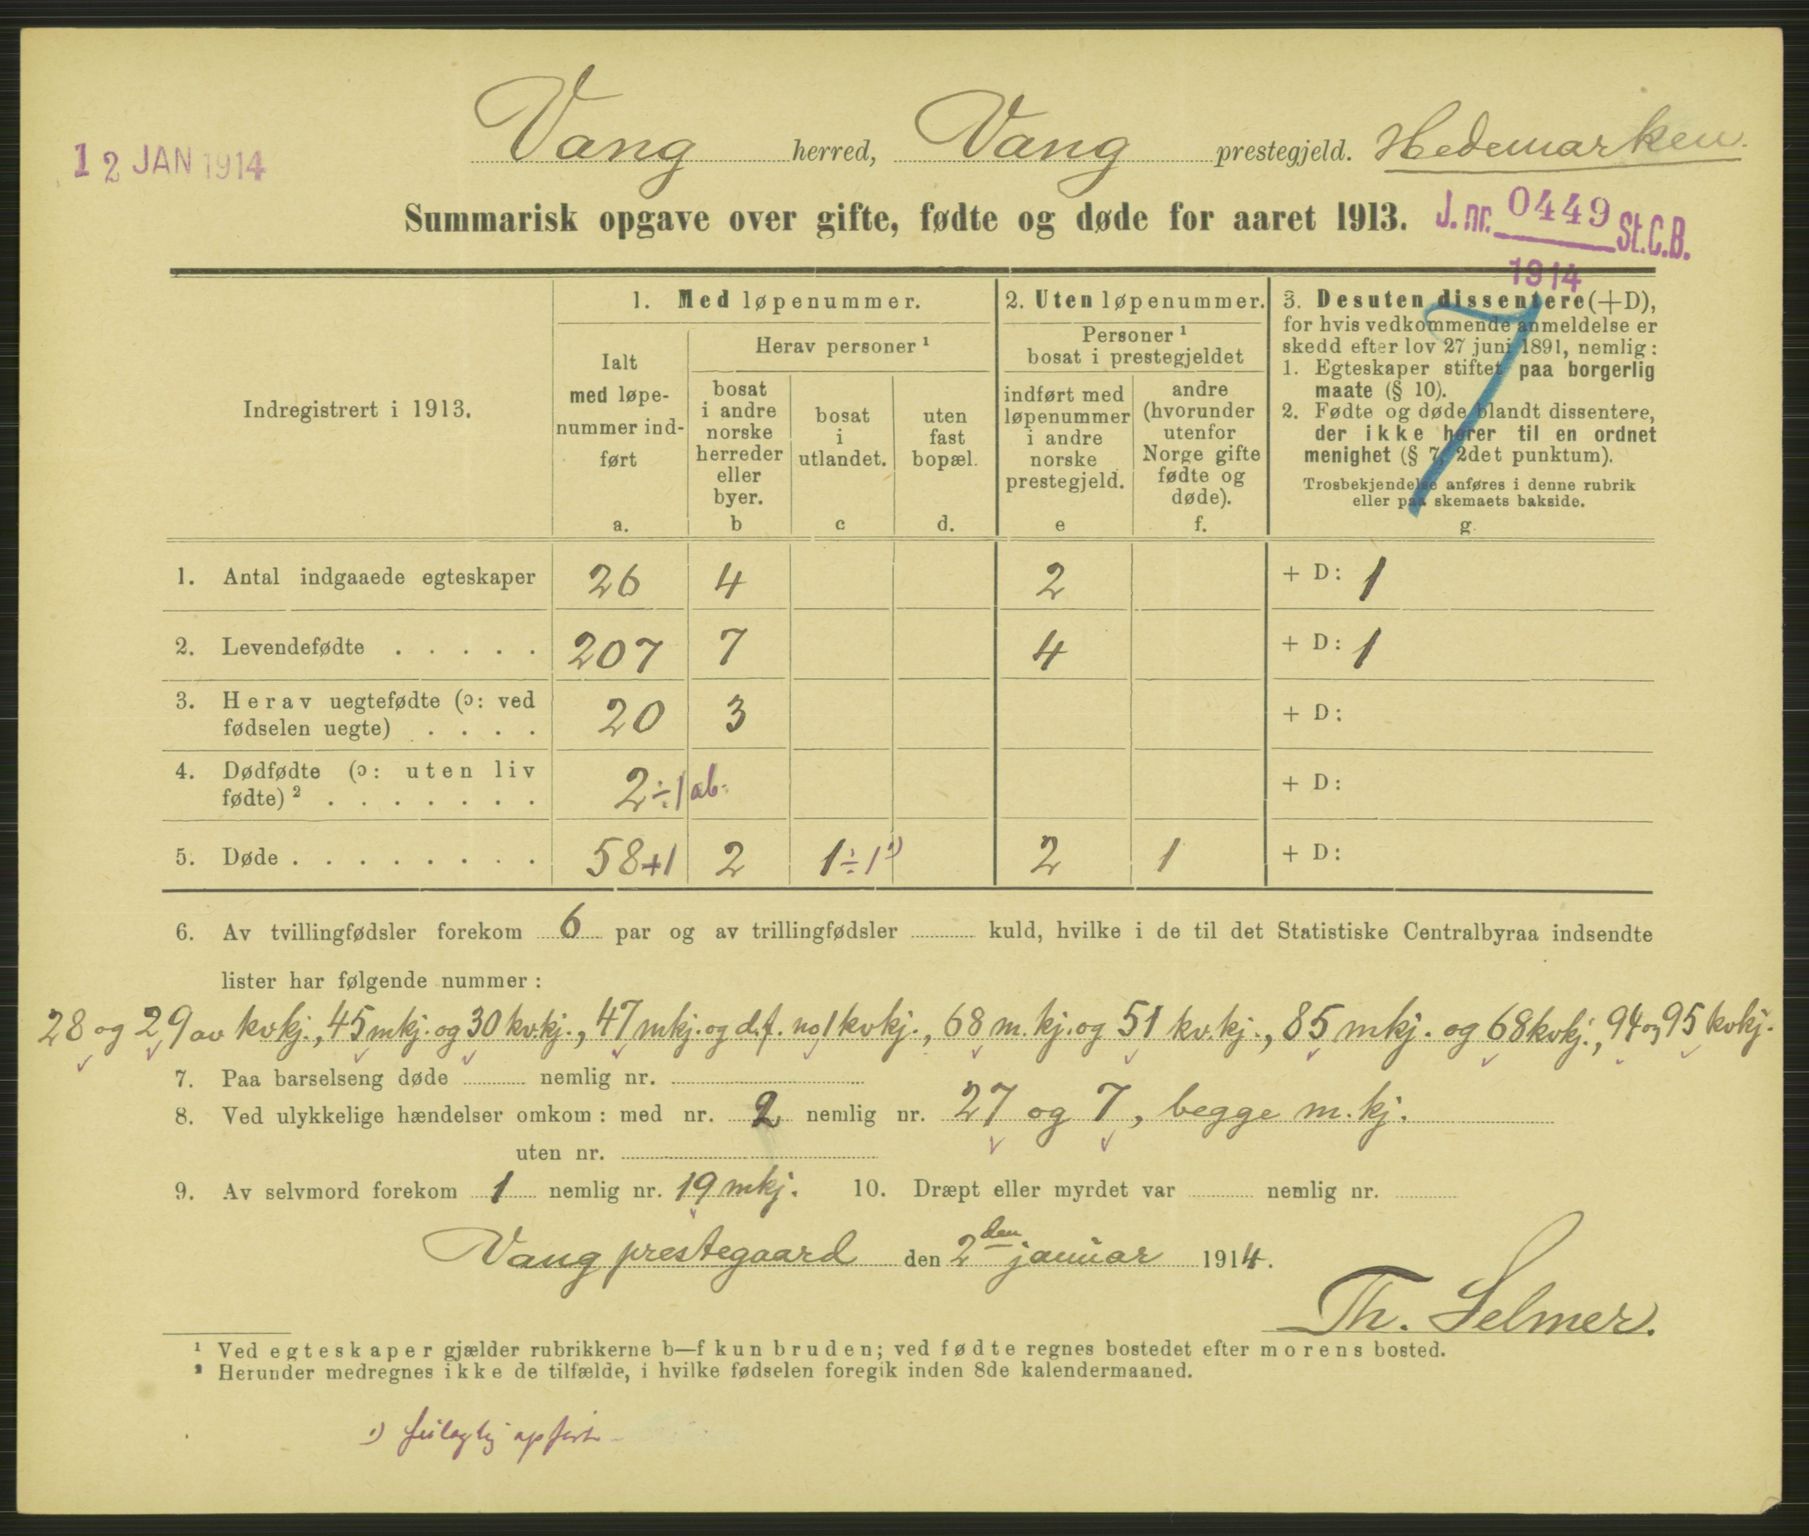 Vang herred, Vang prestegjeld. Hedemarken.
12 JAN 1914
Summarisk opgave over gifte, fødte og døde for aaret 1913.
J. nr. 0449 St.C.B.
1914
7
Indregistrert i 1913.
1. Med løpenummer.
Ialt med løpenummer indført
a.
Herav personer ¹
bosat i andre norske herreder eller byer.
b
bosat i utlandet.
c
uten fast bopæl.
d.
2. Uten løpenummer.
Personer ¹ bosat i prestegjeldet
indført med løpenummer i andre norske prestegjeld.
e
andre (hvorunder utenfor Norge gifte fødte og døde).
f.
3. Desuten dissentere (+D),
for hvis vedkommende anmeldelse er
skedd efter lov 27 juni 1891, nemlig:
1. Egteskaper stiftet paa borgerlig
maate (§ 10).
2. Fødte og døde blandt dissentere,
der ikke hører til en ordnet
menighet (§ 7, 2det punktum).
Trosbekjendelse anføres i denne rubrik
eller paa skemaets bakside.
g.
1. Antal indgaaede egteskaper 26 4 2 + D: 1
2. Levendefødte . . . . . 207 7 4 + D: 1
3. Herav uegtefødte (ɔ: ved
fødselen uegte) . . . . 20 3 + D:
4. Dødfødte (ɔ: uten liv
fødte) ² . . . . . . . 2÷1 ab. + D:
5. Døde . . . . . . . . 58+1 2 1÷1¹) 2 1 + D:
6. Av tvillingfødsler forekom 6 par og av trillingfødsler ........ kuld, hvilke i de til det Statistiske Centralbyraa indsendte
lister har følgende nummer:
28 og 29 av kvkj., 45 mkj. og 30 kvkj., 47 mkj. og d.f. no 1 kvkj., 68 m. kj. og 51 kv. kj., 85 mkj. og 68 kvkj., 94 og 95 kvkj.
7. Paa barselseng døde ........ nemlig nr. ........
8. Ved ulykkelige hændelser omkom: med nr. 2 nemlig nr. 27 og 7, begge m. kj.
uten nr. ........
9. Av selvmord forekom 1 nemlig nr. 19 mkj. 10. Dræpt eller myrdet var ........ nemlig nr. ........
Vang prestegaard den 2den januar 1914.
Th. Selmer.
¹ Ved egteskaper gjælder rubrikkerne b—f kun bruden; ved fødte regnes bostedet efter morens bosted.
² Herunder medregnes ikke de tilfælde, i hvilke fødselen foregik inden 8de kalendermaaned.
1) feilagtig opført